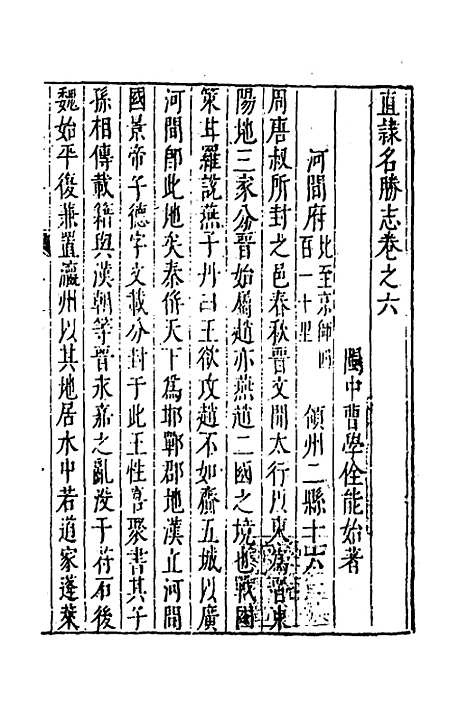 直隷名勝志卷之六
閩中曹學佺能始著
河間府 北至京師四百一十里 領州二縣十六
周唐叔所封之邑春秋晉文開太行以東為晉東
陽地三家分晉始屬趙亦燕趙二國之境也戰國
策甘羅說燕子丹曰王欲攻趙不如齎五城以廣
河間即此地矣秦倂天下爲邯鄲郡地漢立河間
國景帝子德字文載分封于此王性喜聚書其子
孫相傳載籍與漢朝等晉永嘉之亂沒于苻石後
魏始平復兼置瀛州以其地居水中若道家蓬萊